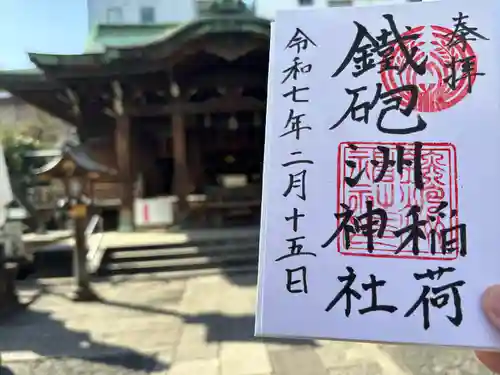 奉拝
鐵砲洲
稲荷神社
令和七年二月十五日